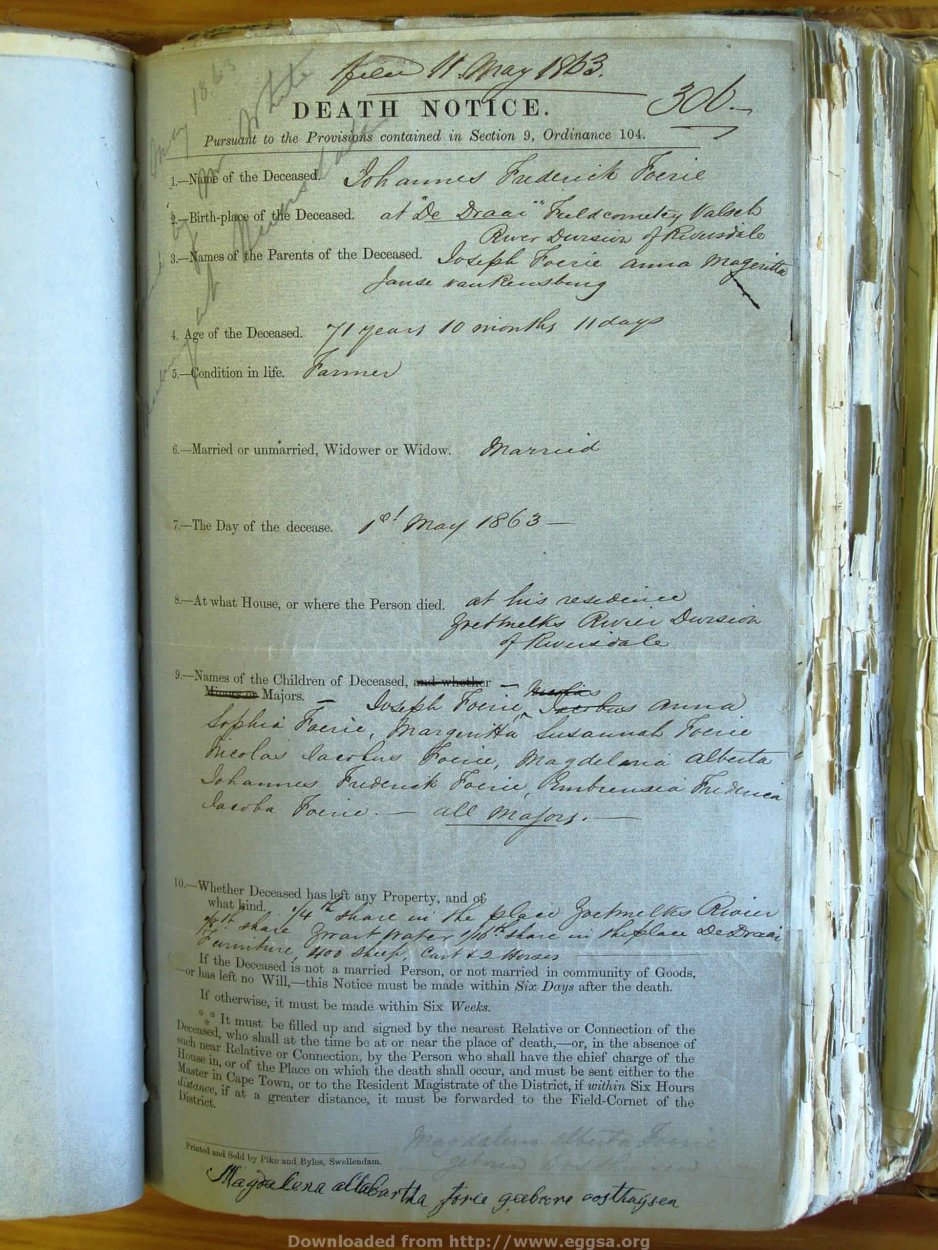 filed 11 May 1863.
306.
DEATH NOTICE.
Pursuant to the Provisions contained in Section 9, Ordinance 104.
1.—Name of the Deceased. Johannes Frederick Foerie
2.—Birth-place of the Deceased. at "De Draai" Fieldcornetcy Valsch
River Division of Riversdale
3.—Names of the Parents of the Deceased. Joseph Foerie Anna Mageritta
Janse van Rensburg
4. Age of the Deceased. 71 years 10 months 11 days
5.—Condition in life. Farmer
6.—Married or unmarried, Widower or Widow. Married
7.—The Day of the decease. 1st May 1863 —
8.—At what House, or where the Person died. at his residence
Zoetmelks Rivier Division
of Riversdale
9.—Names of the Children of Deceased, and whether —
Minors or Majors. — Joseph Foerie, Jacobus Anna
Sophia Foerie, Margeritta Susannah Foerie
Nicolas Jacobus Foerie, Magdelena Alberta
Johannes Frederick Foerie, Frederica
Jacoba Foerie. — all Majors. —
10.—Whether Deceased has left any Property, and of
what kind. 1/4th share in the place Zoetmelks Rivier
share Zwart water 1/16th share in the place De Draai
Furniture, 400 Sheep, Cart & 2 Horses
If the Deceased is not a married Person, or not married in community of Goods,
—or has left no Will,—this Notice must be made within Six Days after the death.
If otherwise, it must be made within Six Weeks.
*** It must be filled up and signed by the nearest Relative or Connection of the
Deceased, who shall at the time be at or near the place of death,—or, in the absence of
such near Relative or Connection, by the Person who shall have the chief charge of the
House in, or of the Place on which the death shall occur, and must be sent either to the
Master in Cape Town, or to the Resident Magistrate of the District, if within Six Hours
distance, if at a greater distance, it must be forwarded to the Field-Cornet of the
District.
Magdalena Alberta Foerie
Printed and Sold by Pike and Byles, Swellendam.
Magdalena allabartha forie geboore oosthuysen
Downloaded from http://www.eggsa.org